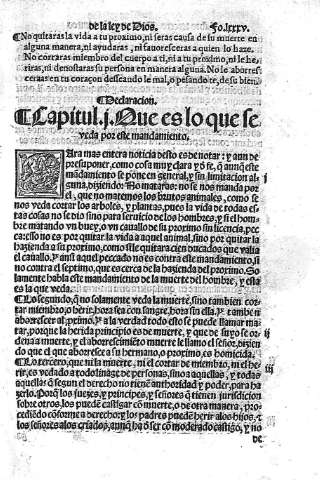 de la ley de Dios. Fo.lxxxv.
No quitaras la vida a tu proximo, ni seras causa de su muerte en
alguna manera, ni ayudaras, ni fauoreceras a quien lo haze.
No cortaras miembro del cuerpo a ti, ni a tu proximo, ni le he,
riras, ni denostaras su persona en manera alguna. No le aborres
ceras en tu coraçon desseando le mal, o pesando te, de su bien.
Declaracion.
Capitul.j. Que es lo que se
veda por este mandamiento.
Ara mas entera noticia desto es de notar: y aun de
presuponer, como cosa muy clara y d̃ fe, q̃ aunq̃ este
mãdamiento se pone en general, y sin limitacion al
guna, diziendo: No mataras: no se nos manda por
el, que no matemos los brutos animales, como se
nos veda cortar los arboles, y plantas, pues la vida de todas es
tas cosas no se dio sino para seruicio de los hombres, y si el hom
bre matando vn buey, o vn cauallo de su proximo sin licencia, pe
ca: esso no es por quitar la vida a aquel animal, sino por quitar la
hazienda a su proximo, como si le quitara cien ducados que valia
el cauallo, y ansi aquel peccado no es contra este mandamiento, si
no contra el septimo, que es cerca de la hazienda del proximo. So
lamente habla este mandamiento de la muerte del hombre, y esta
es la que veda.
Lo segundo, q̃ no solamente veda la muerte, sino tambien cor
tar miembro, o herir, hora sea con sangre, hora sin ella. Y tambien
aborrescer al primo. Y a la verdad todo esto se puede llamar ma
tar, porque la herida principio es de muerte, y que de suyo se or
dena a muerte, y el aborrescimiẽto muerte le llamo el señor, dizien
do que el que aborresce a su hermano, o proximo, es homicida.
ij
Lo tercero, que ni la muerte, ni el cortar de miembro, ni el he
rir, es vedado a todo linage de personas, sino a aquellas, y todas
iij
aquellas q̃ segun el derecho no tienẽ authoridad y poder, para ha
zerlo. Porq̃ los juezes, y principes, y señores q̃ tienen jurisdicion
sobre otros, los puedẽ castigar cõ muerte, o de otra manera, pro,
cediẽdo cõforme a derecho: y los padres puedẽ herir a los hijos, &
los señores a los criados, aunq̃ ha d̃ ser cõ moderado castigo, y no
de